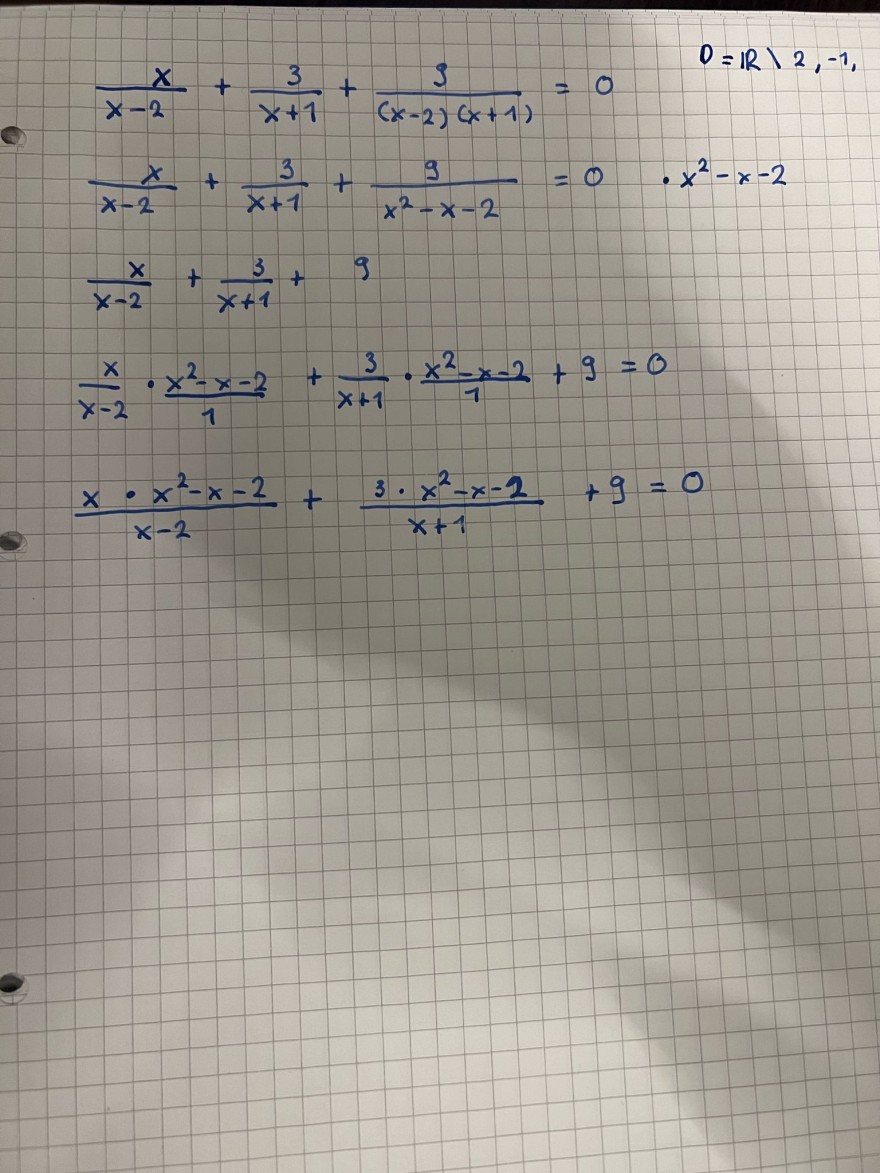 x/(x-2) + 3/(x+1) + 9/((x-2)(x+1)) = 0 D = ℝ \ 2, -1,
x/(x-2) + 3/(x+1) + 9/(x²-x-2) = 0 · x²-x-2
x/(x-2) + 3/(x+1) + 9
x/(x-2) · (x²-x-2)/1 + 3/(x+1) · (x²-x-2)/1 + 9 = 0
(x · x²-x-2)/(x-2) + (3 · x²-x-2)/(x+1) + 9 = 0